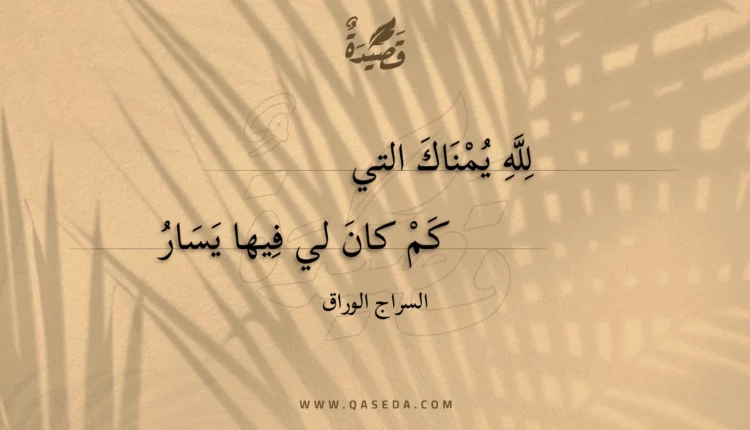 قَصِيْدَةٌ
لِلَّهِ يُمْنَاكَ التي
كَمْ كانَ لي فِيها يَسَارُ
السراج الوراق
WWW.QASEDA.COM